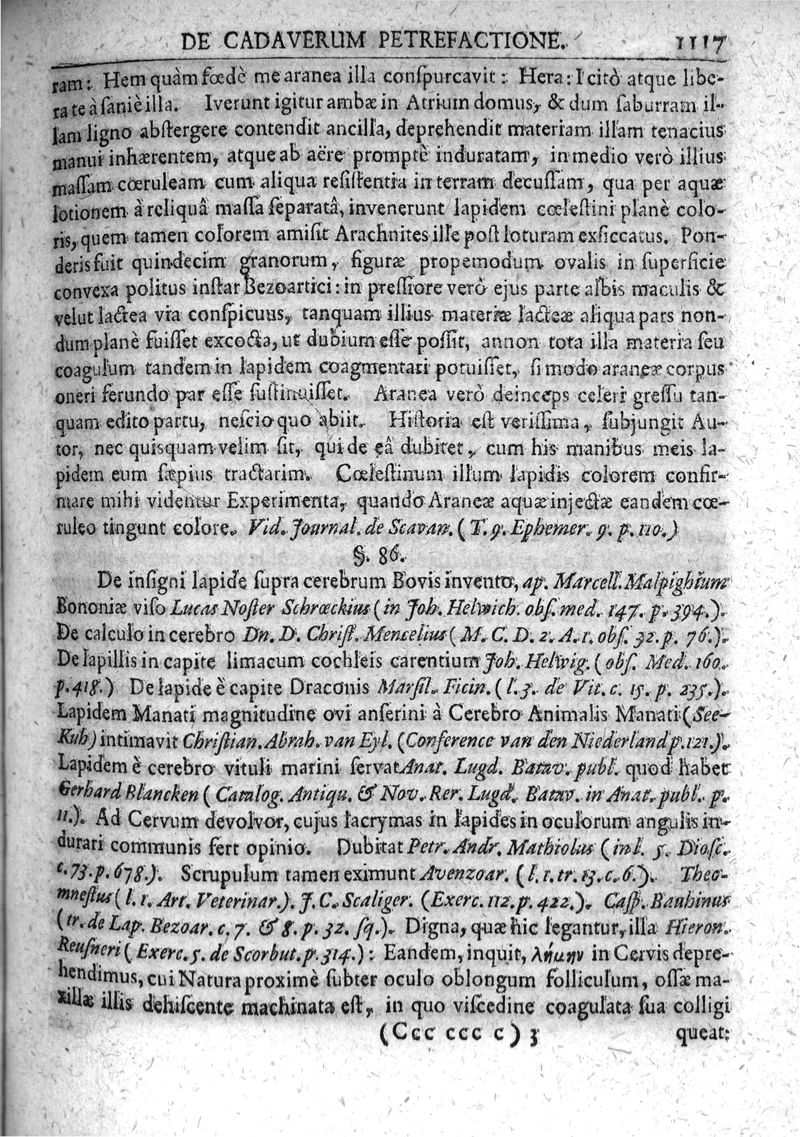 DE CADAVERUM PETREFACTIONE. 1117
ram: Hem quàm fœdè me aranea illa conſpurcavit: Hera: I citò atque libe-
ra te à ſaniè illa. Iverunt igitur ambæ in Atrium domus, & dum ſaburram il-
lam ligno abſtergere contendit ancilla, deprehendit materiam illam tenacius
manui inhærentem, atque ab aëre promptè induratam, in medio verò illius
maſſam cœruleam cum aliqua reſiſtentia in terram decuſſam, qua per aquæ
lotionem à reliquâ maſſa ſeparatâ, invenerunt lapidem cœleſtini planè colo-
ris, quem tamen colorem amiſit Arachnites ille poſt loturam exſiccatus. Pon-
deris fuit quindecim granorum, figuræ propemodum ovalis in ſuperficie
convexa politus inſtar Bezoartici: in preſſiore verò ejus parte albis maculis &
velut lactea via conſpicuus, tanquam illius materiæ lacteæ aliqua pars non-
dum planè fuiſſet excocta, ut dubium eſſe poſſit, annon tota illa materia ſeu
coagulum tandem in lapidem coagmentari potuiſſet, ſi modo araneæ corpus
oneri ferundo par eſſe ſuſtinuiſſet. Aranea verò deinceps celeri greſſu tan-
quam edito partu, neſcio quo abiit. Hiſtoria eſt veriſſima, ſubjungit Au-
tor, nec quisquam velim ſit, qui de eâ dubitet, cum his manibus meis la-
pidem eum ſæpius tractarim. Cœleſtinum illum lapidis colorem confir-
mare mihi videntur Experimenta, quando Araneæ aquæ injectæ eandem cœ-
ruleo tingunt colore. Vid. Journal. de Scavan. (T. 9. Ephemer. 9. p. 110.)
§. 86.
De inſigni lapide ſupra cerebrum Bovis invento, ap. Marcell. Malpighium
Bononiæ viſo Lucas Noſter Schrœckius (in Joh. Helwich. obſ. med. 147. p. 394.).
De calculo in cerebro Dn. D. Chriſt. Mencelius (M. C. D. 2. A. 1. obſ. 32. p. 76.).
De lapillis in capite limacum cochleis carentium Joh. Helwig. (obſ. Med. 160.
p. 418.) De lapide è capite Draconis Marſil. Ficin. (l. 3. de Vit. c. 15. p. 235.).
Lapidem Manati magnitudine ovi anſerini à Cerebro Animalis Manati (See-
Kuh) intimavit Chriſtian. Abrah. van Eyl. (Conference van den Niederland p. 121.).
Lapidem è cerebro vituli marini ſervat Anat. Lugd. Batav. publ. quod habet
Gerhard Blancken (Catalog. Antiqu. & Nov. Rer. Lugd. Batav. in Anat. publ. p.
11.). Ad Cervum devolvor, cujus lacrymas in lapides in oculorum angulis in-
durari communis fert opinio. Dubitat Petr. Andr. Mathiolus (in l. 5. Dioſc.
c. 73. p. 678.). Scrupulum tamen eximunt Avenzoar. (l. 1. tr. 13. c. 6.). Theo-
mneſtus (l. 1. Art. Veterinar.). J. C. Scaliger. (Exerc. 112. p. 422.). Caſp. Bauhinus
(tr. de Lap. Bezoar. c. 7. & 8. p. 32. ſq.). Digna, quæ hic legantur, illa Hieron.
Reuſneri (Exerc. 5. de Scorbut. p. 314.): Eandem, inquit, λήμην in Cervis depre-
hendimus, cui Natura proximè ſubter oculo oblongum folliculum, oſſæ ma-
xillæ illis dehiſcente machinata eſt, in quo viſcedine coagulata ſua colligi
(Ccc ccc c) 3 queat: